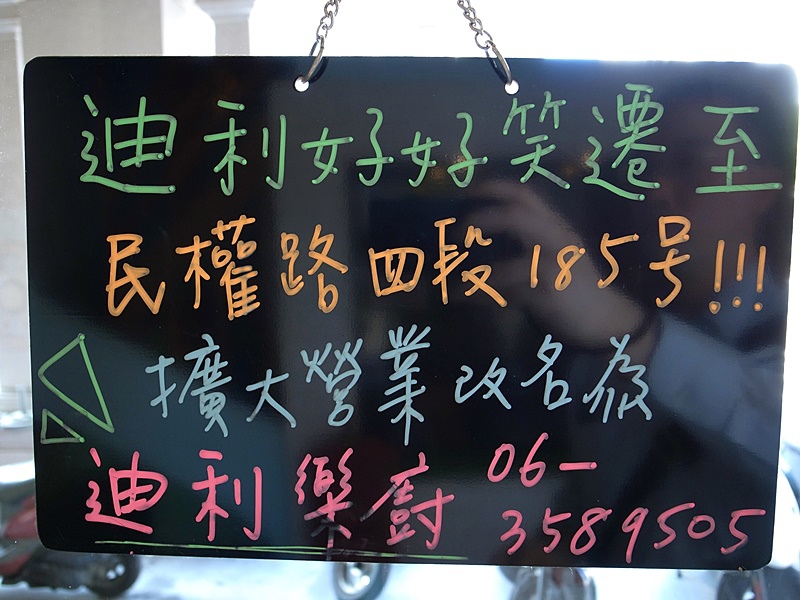 迪利好好笑遷至
民權路四段185号!!!
擴大營業改名為
迪利樂廚 06-
3589505